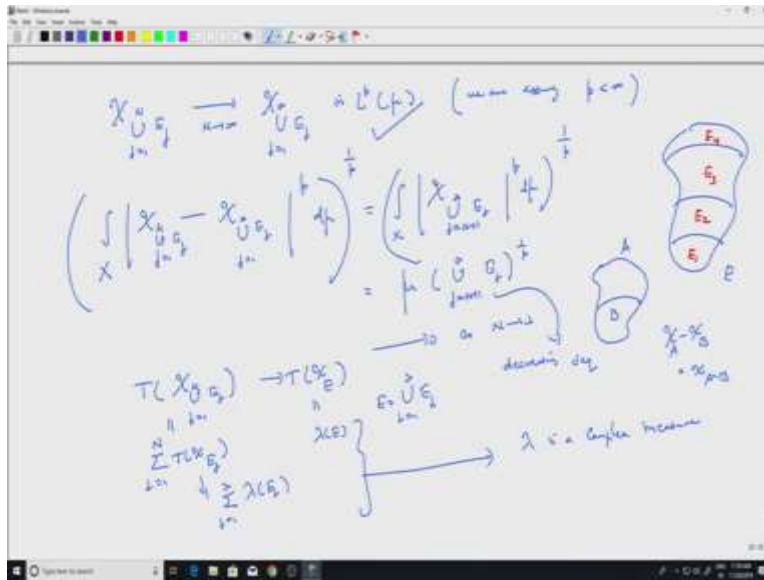 χ_{⋃_{j=1}^{N} E_j} ⟶_{N→∞} χ_{⋃_{j=1}^{∞} E_j} in L^p(μ) (we are using p<∞)
( ∫_X | χ_{⋃_{j=1}^{N} E_j} − χ_{⋃_{j=1}^{∞} E_j} |^p dμ )^{1/p} = ( ∫_X | χ_{⋃_{j=N+1}^{∞} E_j} |^p dμ )^{1/p}
= μ( ⋃_{j=N+1}^{∞} E_j )^{1/p}
⟶ 0 as N→∞
decreasing seq
E_4
E_3
E_2
E_1
E
A
B
χ_A − χ_B
= χ_{A\B}
T( χ_{⋃_{j=1}^{N} E_j} ) → T(χ_E) E = ⋃_{j=1}^{∞} E_j
|| ||
∑_{j=1}^{N} T(χ_{E_j}) λ(E)
↓ ∑_{j=1}^{∞} λ(E_j)
λ is a complex measure
Type here to search